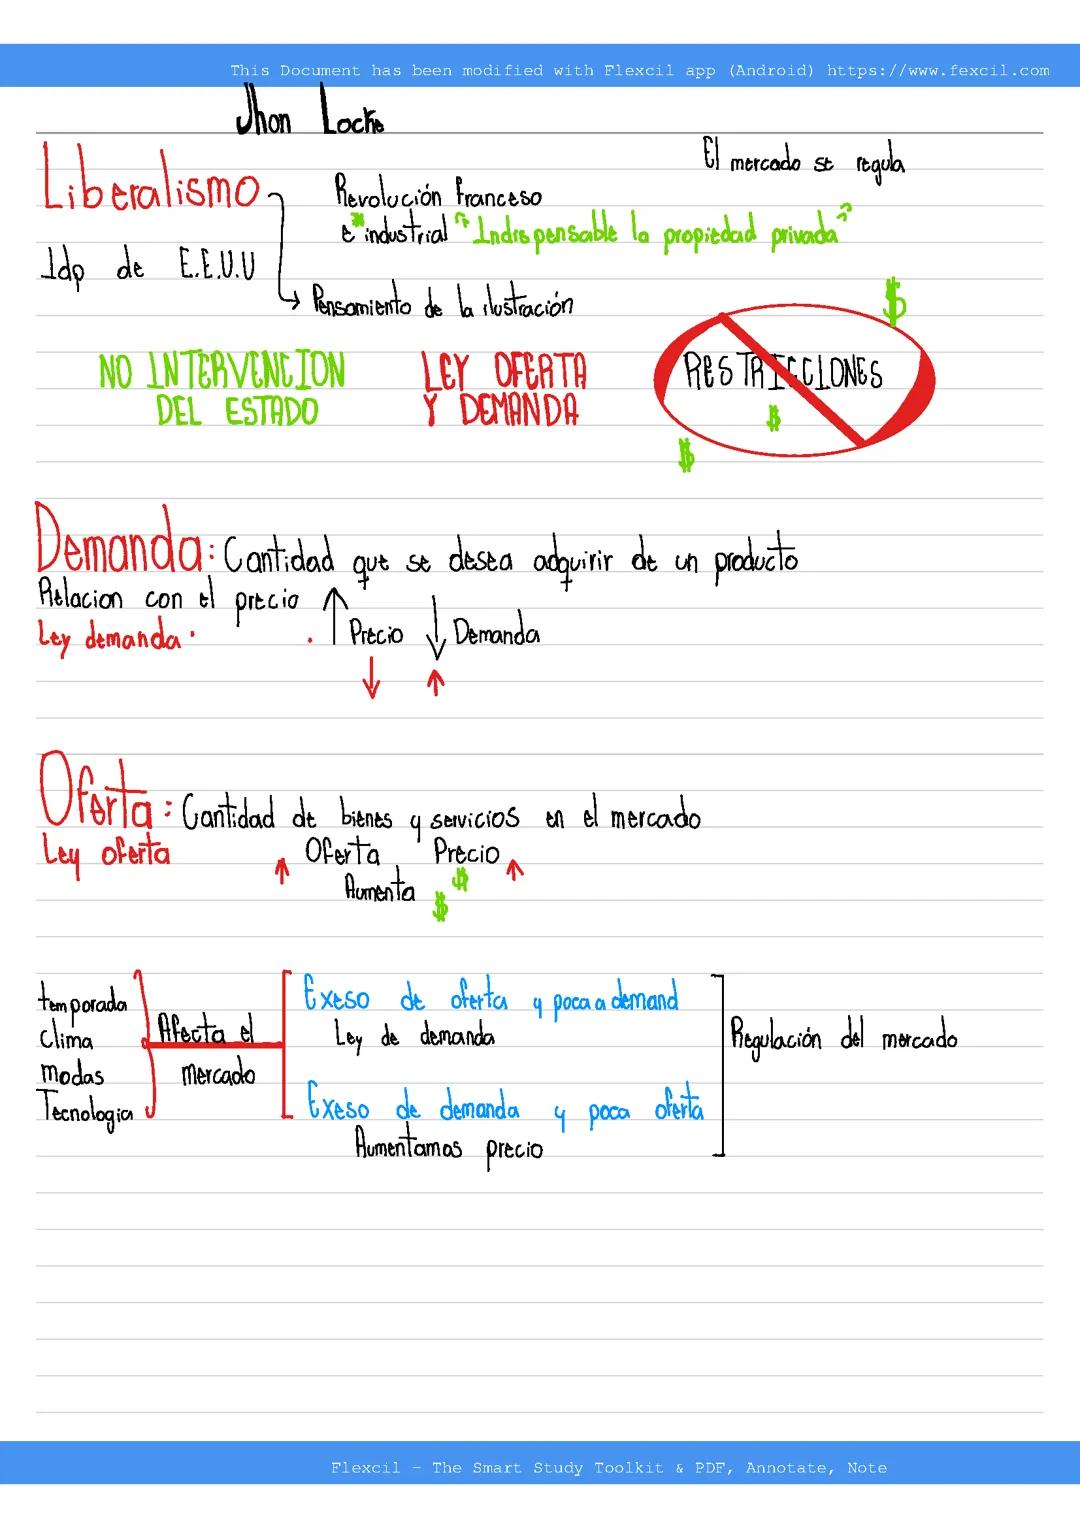 This Document has been modified with Flexcil app (Android) https://www.fexcil.com
Jhon Locke
El mercado se regula
Liberalismo
Revolución franceso
e industrial "Indispensable la propiedad privada"
Idp de E.E.U.U
Pensamiento de la ilustración
NO INTERVENCION
DEL ESTADO
LEY OFERTA
Y DEMANDA
RESTRICCIONES
$
$
$
Demanda: Cantidad que se desea adquirir de un producto
Relacion con el precio
Ley demanda. . ↑ Precio ↓ Demanda
↓ ↑
Oferta: Cantidad de bienes y servicios en el mercado
Ley oferta ↑ Oferta Precio ↑
Aumenta $ $
temporada
clima
modas
Tecnologia
Afecta el
mercado
Exeso de oferta y poca a demand
Ley de demanda
Exeso de demanda y poca oferta
Aumentamos precio
Regulación del mercado
Flexcil - The Smart Study Toolkit & PDF, Annotate, Note